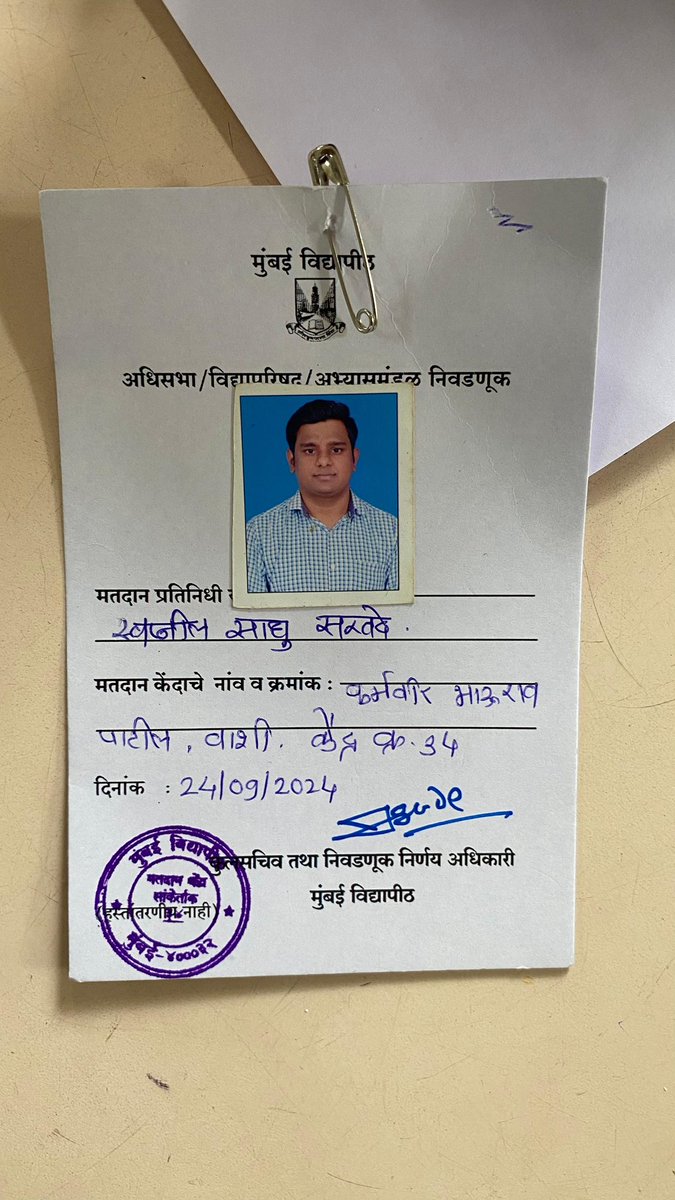 मुंबई विद्यापीठ
अधिसभा/विद्यापरिषद/अभ्यासमंडळ निवडणूक
मतदान प्रतिनिधी
स्वप्नील साधु सरवदे.
मतदान केंदाचे नांव व क्रमांक : कर्मवीर भाऊराव
पाटील, वाशी. केंद्र क्र. 34
दिनांक : 24/09/2024
कुलसचिव तथा निवडणूक निर्णय अधिकारी
मुंबई विद्यापीठ
(हस्तांतरणीय नाही)
मुंबई विद्यापीठ
मतदान केंद्र
सांकेतांक
३४
मुंबई-४०००३२